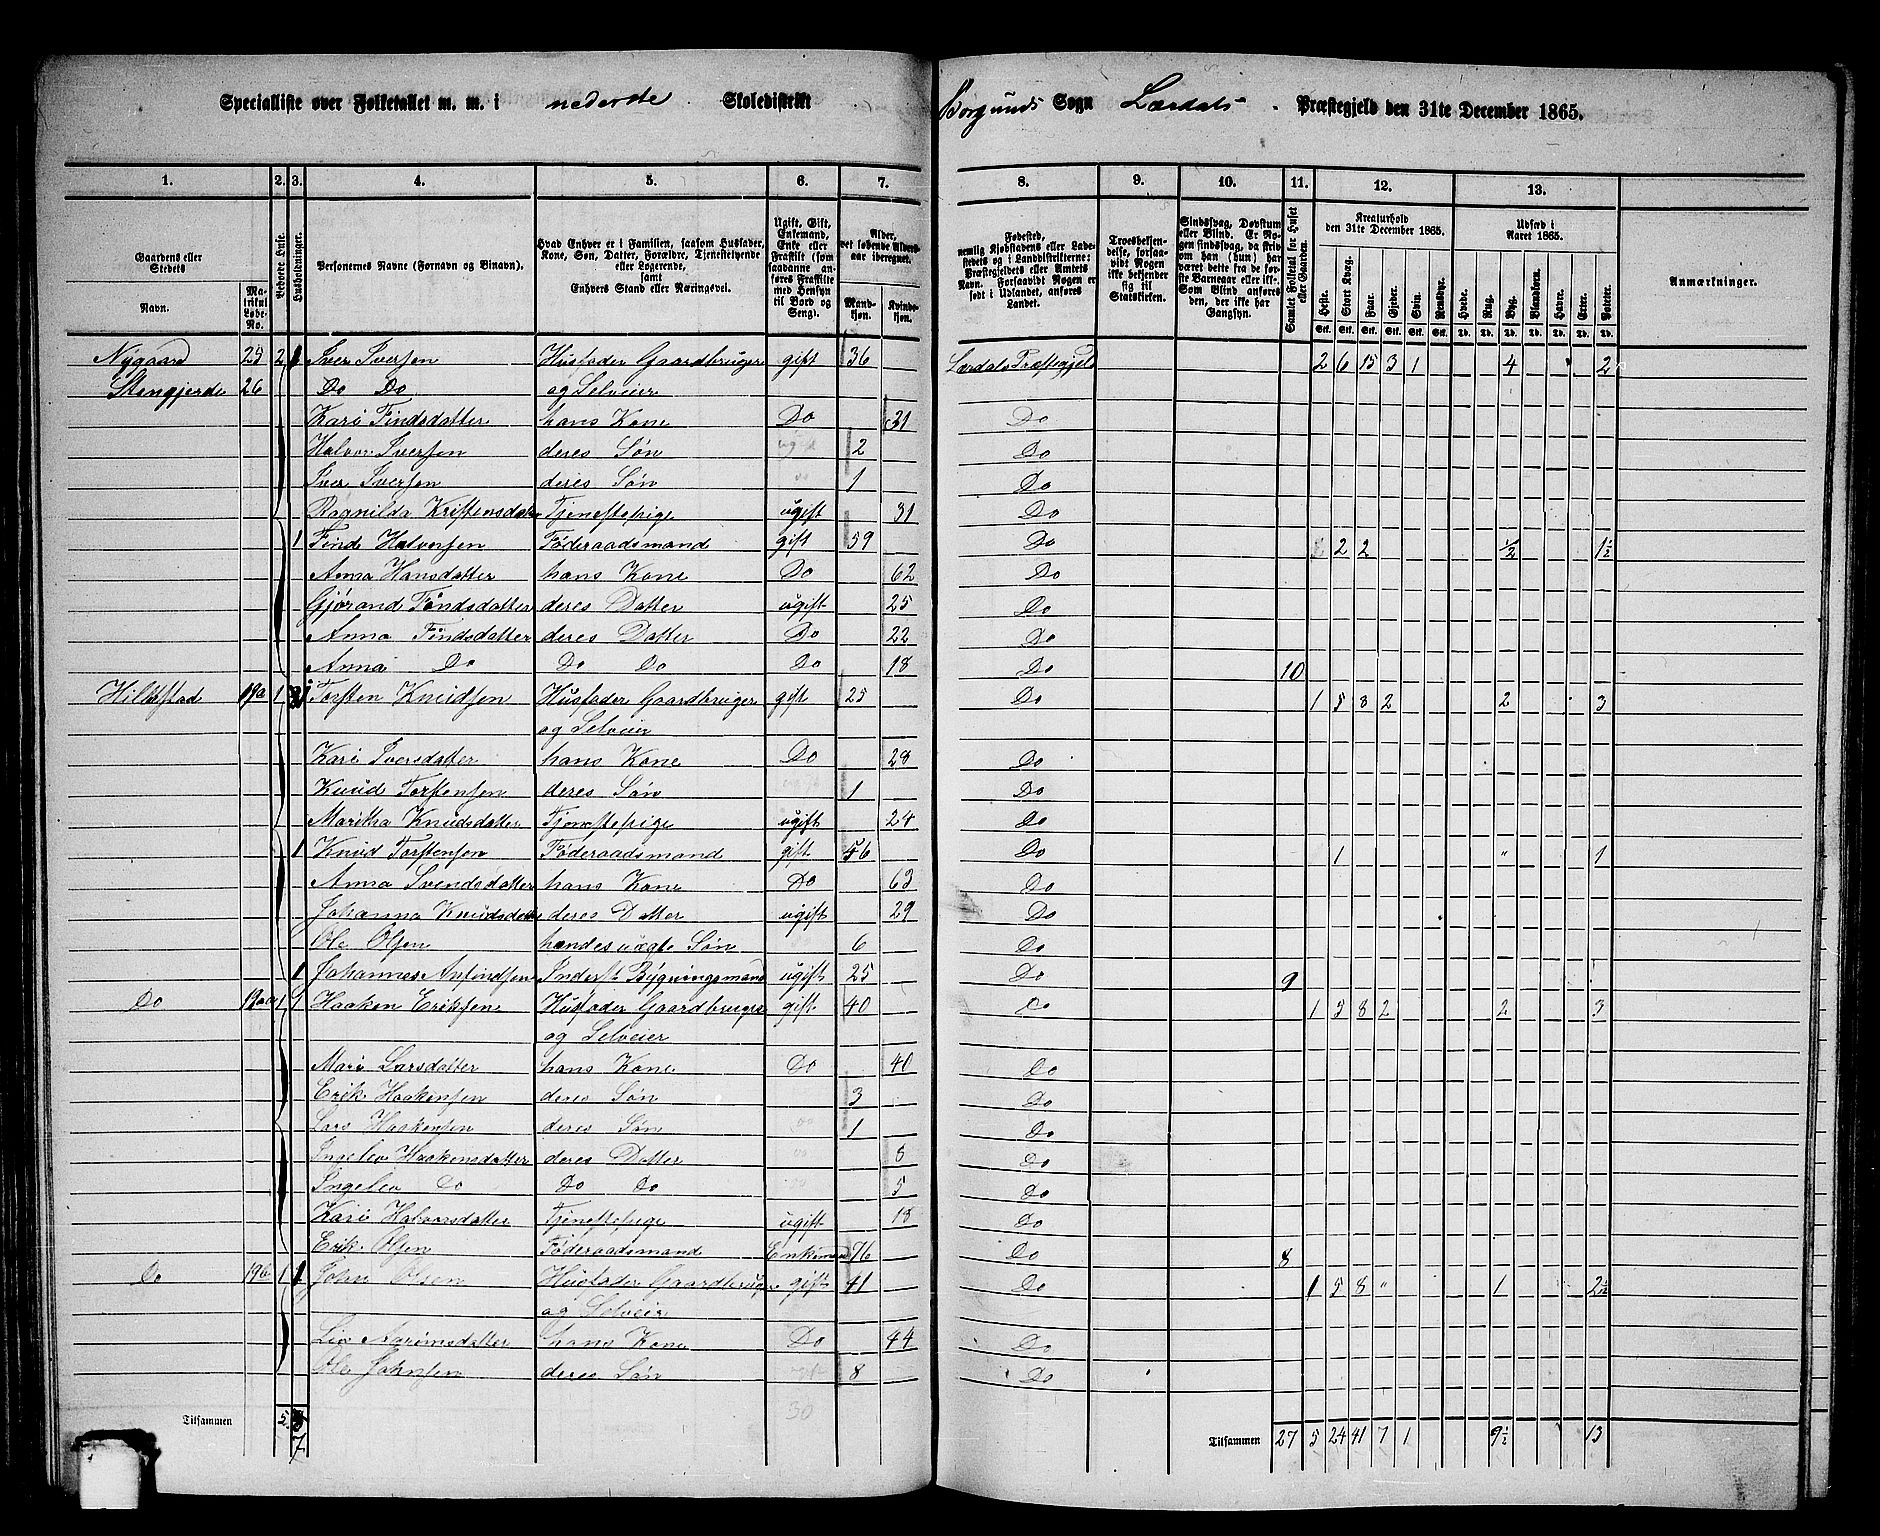 Specialliste over Folketallet m. m. i nederste Skoledistrikt Borgunds Sogn Lærdals Præstegjeld den 31te December 1865.
1. 2. 3. 4. 5. 6. 7. 8. 9. 10. 11. 12. 13.
Gaardens eller Stedets Navn. Matrikul Løbe-No. Beboede Huse. Husholdninger. Personernes Navne (Fornavn og Binavn). Hvad Enhver er i Familien, saasom Husfader, Kone, Søn, Datter, Forældre, Tjenestetyende eller Logerende, samt Enhvers Stand eller Næringsvei. Ugift, Gift, Enkemand, Enke eller Fraskilt (som saadanne anføres Fraskilte med Hensyn til Bord og Seng). Alder, det løbende Aldersaar iberegnet. Mandkjøn. Kvindekjøn.
Fødested, nemlig Kjøbstadens eller Ladestedets eller i Landdistrikterne: Præstegjeldets eller Amtets Navn. Forsaavidt Nogen er født i Udlandet, anføres Landet. Troesbekjendelse, forsaavidt Nogen ikke bekjender sig til Statskirken. Sindssvag, Døvstum eller Blind. Er Nogen sindssvag, da skrives om han (hun) har været dette fra de første Barneaar eller ikke. Som Blind anføres den, der ikke har Gangsyn. Samlet Folketal for Huset eller Gaarden. Kreaturhold den 31te December 1865. Udsæd i Aaret 1865. Anmærkninger.
Heste. Stort Kvæg. Faar. Gjeder. Svin. Rensdyr. Hvede. Rug. Byg. Blandkorn. Havre. Erter. Poteter.
Nygaard 25 2 1 Iver Iversen Husfader Gaardbruger gift 36 Lærdals Præstegjeld 2 6 15 3 1 4 2
Stengjerde 26 Do Do og Selveier
Kari Findsdatter hans Kone Do 31 Do
Halvor Iversen deres Søn ugift 2 Do
Iver Iversen deres Søn 1 Do
Ragnilda Kristensdatter Tjenestepige ugift 31 Do
1 Find Halvorsen Føderaadsmand gift 59 Do 2 2 1/2 1 1/2
Anna Hansdatter hans Kone Do 62 Do
Gjørand Findsdatter deres Datter ugift 25 Do
Anna Findsdatter deres Datter Do 22 Do
Anna Do Do Do Do 18 Do 10
19a 1 1 Torsten Knudsen Husfader Gaardbruger gift 25 Do 1 5 8 2 2 3
og Selveier
Kari Iversdatter hans Kone Do 28 Do
Knud Torstensen deres Søn 1 Do
Maritha Knudsdatter Tjenestepige ugift 24 Do
1 Knud Torstensen Føderaadsmand gift 56 Do 1 " 1
Anna Svendsdatter hans Kone Do 63 Do
Johanna Knudsdatter deres Datter ugift 29 Do
Ole Olsen hendes uægte Søn 6 Do
1 Johannes Anfindsen Inderst Bygningsmand ugift 25 Do 9
Do 1 1 Haaken Eriksen Husfader Gaardbruger gift 40 Do 1 5 8 2 2 3
og Selveier
Mari Larsdatter hans Kone Do 40 Do
Erik Haakensen deres Søn 3 Do
Lars Haakensen deres Søn 1 Do
Ingelev Haakensdatter deres Datter 8 Do
Ingelev Do Do Do 5 Do
Kari Halvorsdatter Tjenestepige ugift 18 Do
Erik Olsen Føderaadsmand Enkemand 76 Do 8
Do 19b 1 1 John Olsen Husfader Gaardbruger gift 41 Do 1 5 8 " 1 2 1/2
og Selveier
hans Kone Do 44 Do
Ole Johnsen deres Søn ugift 8 Do
Tilsammen 5 7 30 Tilsammen 27 5 24 41 7 1 9 1/2 13